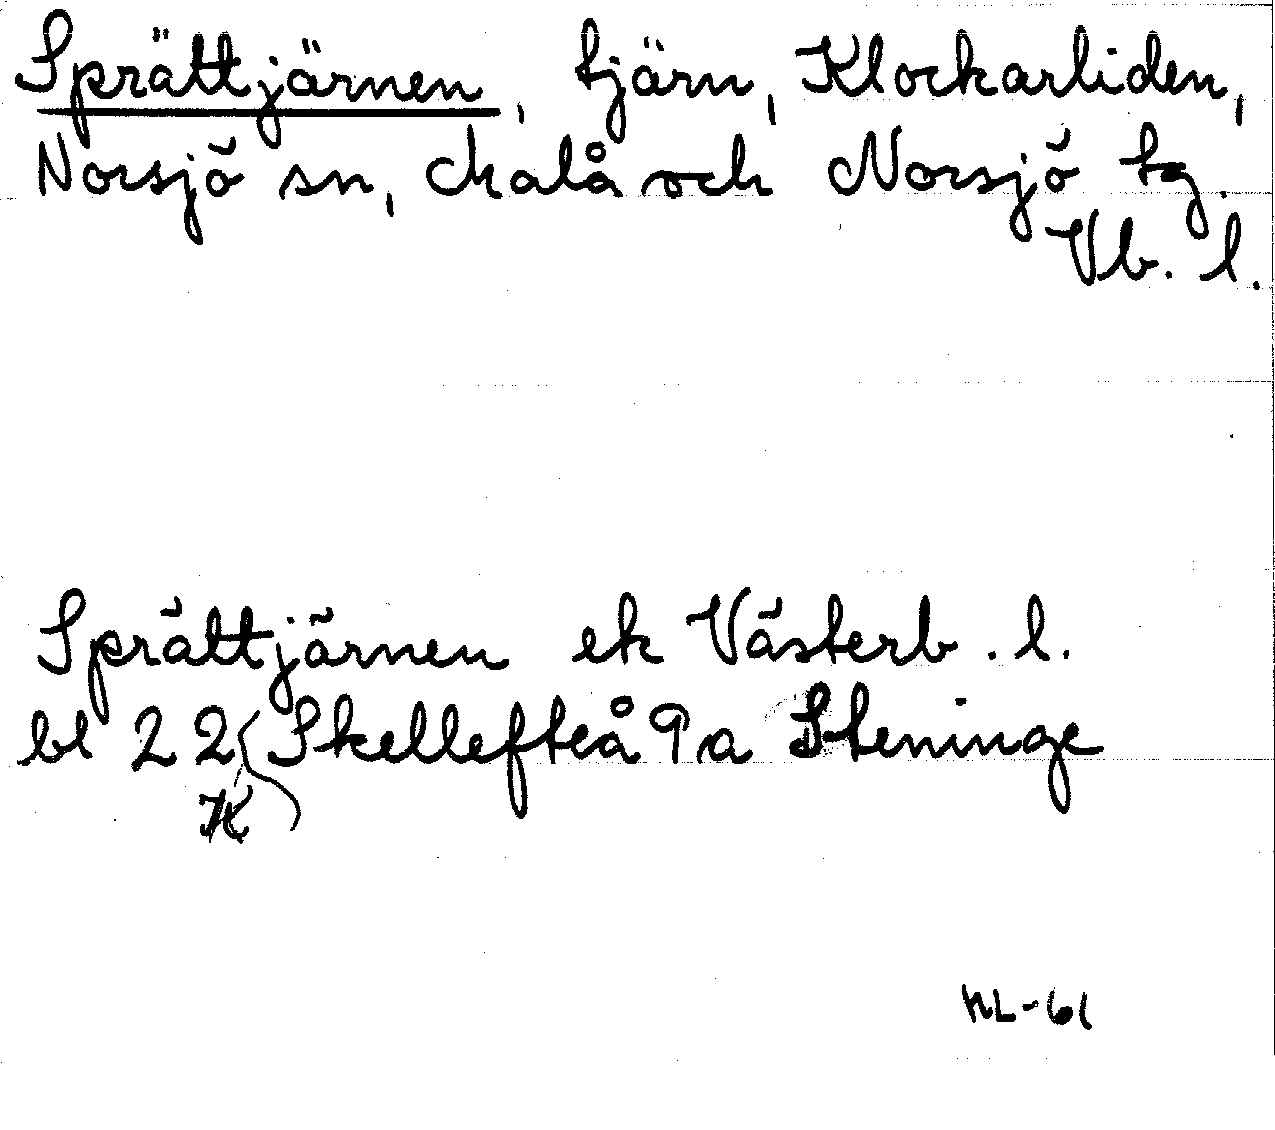 Sprättjärnen, tjärn, Klockarliden,
Norsjö sn, Malå och Norsjö tg.
Vb. l.
Sprättjärnen ek Västerb. l.
bl 22 Skellefteå 9a Steninge
K
HL-61